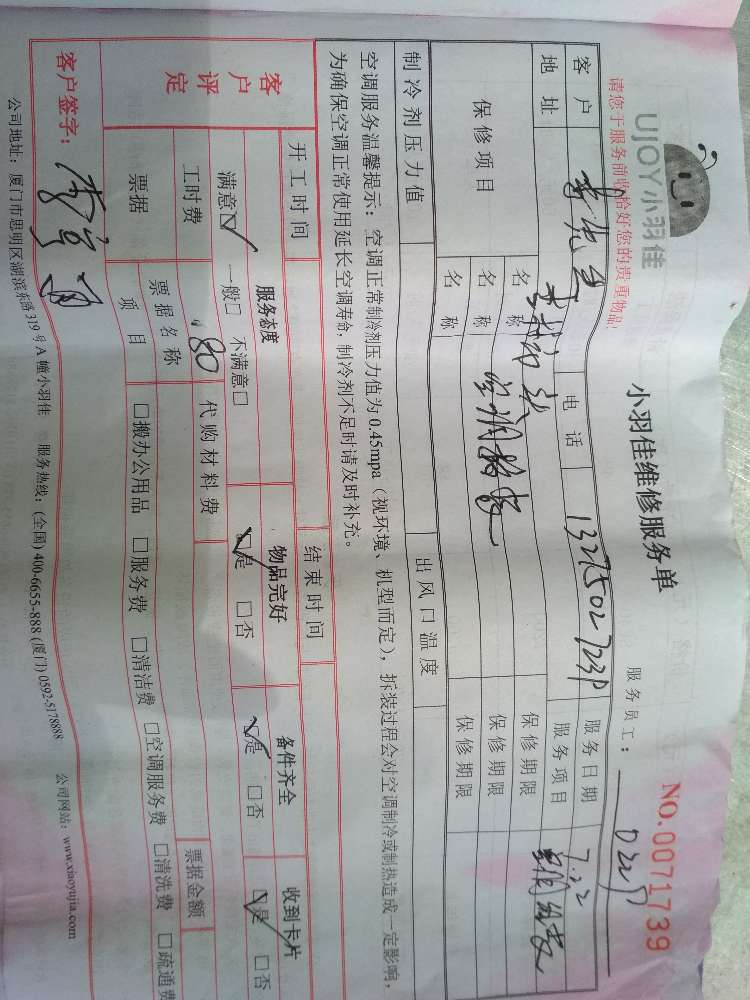 UJOY小羽佳
请您于服务前收拾好您的贵重物品!
小羽佳维修服务单
NO.0071739
服务员工:
客户 李先生 电话 服务日期 7.22
地址 服务项目
保修项目 名称 保修期限
名称 保修期限
名称 保修期限
制冷剂压力值 出风口温度
空调服务温馨提示:空调正常制冷剂压力值为0.45mpa(视环境、机型而定),拆装过程会对空调制冷或制热造成一定影响,
为确保空调正常使用延长空调寿命,制冷剂不足时请及时补充。
开工时间 结束时间
客户评定 服务态度 物品完好 备件齐全 收到卡片
满意☑ 一般□ 不满意□ ☑是 □否 ☑是 □否 ☑是 □否
工时费 80 代购材料费
票据 票据名称 票据金额
项目 □搬办公用品 □服务费 □清洁费 □空调服务费 □清洗费 □疏通费
客户签字:
公司地址:厦门市思明区湖滨东路319号A幢小羽佳 服务热线:(全国)400-6655-888(厦门)0592-5178888 公司网站:www.xiaoyujia.com